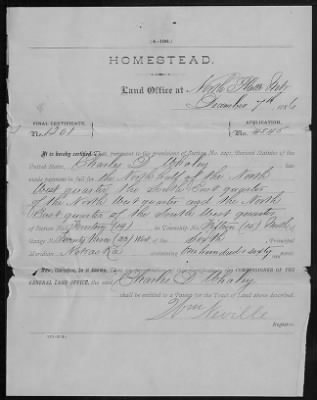 HOMESTEAD.
Land Office at North Platte Neb
December 7th 1886
FINAL CERTIFICATE, APPLICATION,
No. 1301 No. 4545
It is hereby certified, That, pursuant to the provisions of Section No. 2291, Revised Statutes of the
United States, Charles D. Whaley has
made payment in full for the North half of the North
West quarter, the South East quarter
of the North West quarter and the North
East quarter of the South West quarter
of Section No. in Township No. Fifteen (15) North, of
Range No. Twenty Nine (29) West of the Sixth Principal
Meridian Nebraska containing One hundred & sixty acres.
Now, therefore, be it known, That on presentation of this Certificate to the COMMISSIONER OF THE
GENERAL LAND OFFICE, the said Charles D. Whaley
shall be entitled to a Patent for the Tract of Land above described.
Wm Neville
Register.